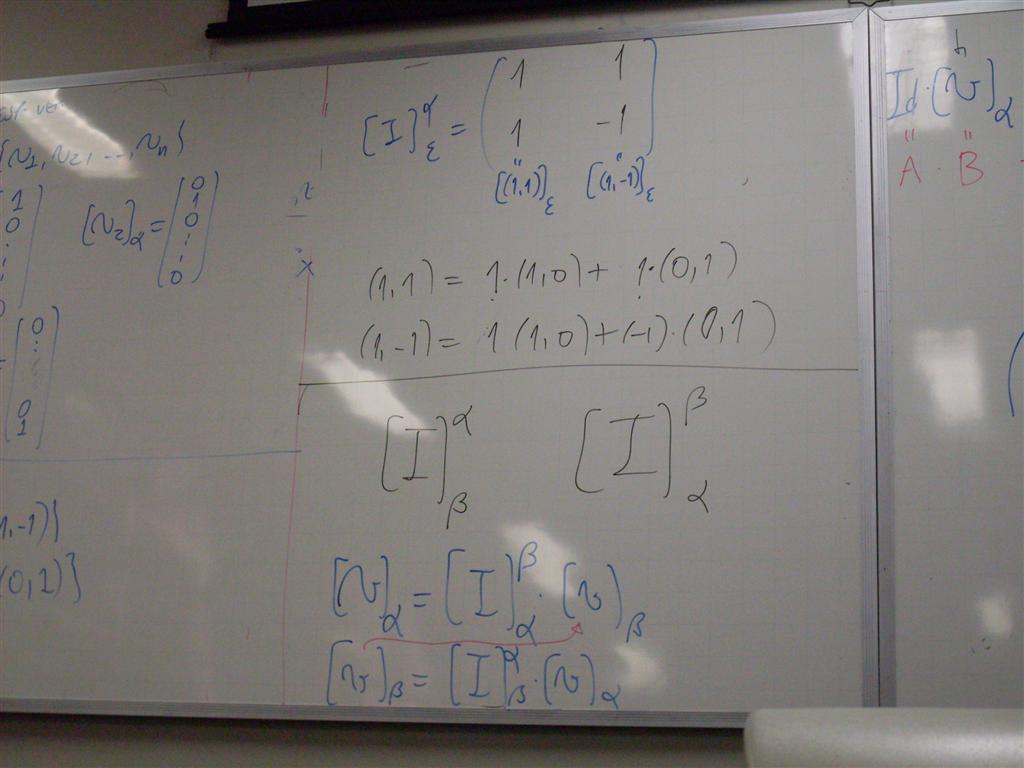 {v1, v2, ..., vn}
1
0
⋮
[v2]α = (0 1 0 ⋮ 0)
0
⋮
0
1
1,-1)}
(0,1)}
[I]^α_ε = (1 1
1 -1)
" "
[(1,1)]ε [(1,-1)]ε
(1,1) = 1·(1,0) + 1·(0,1)
(1,-1) = 1(1,0)+(-1)·(0,1)
[I]^α_β [I]^β_α
[v]α = [I]^β_α · [v]β
[v]β = [I]^α_β · [v]α
Id·[v]α
" "
A · B